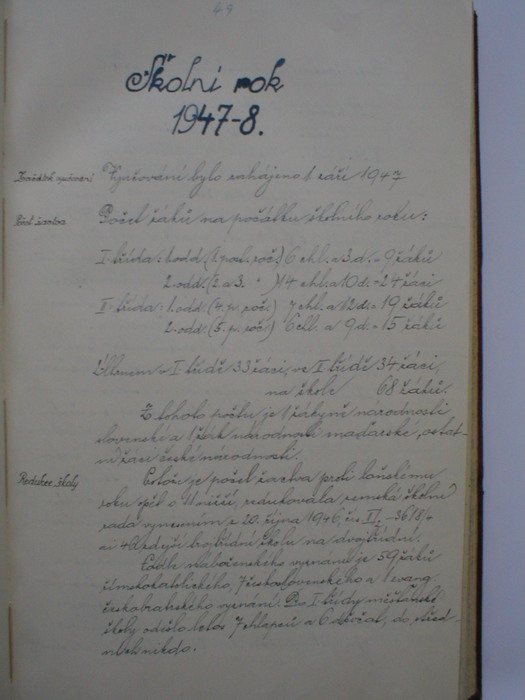 49
Školní rok
1947-8.
Začátek vyučování Vyučování bylo zahájeno 1. září 1947
Počet žactva Počet žáků na počátku školního roku:
I. třída: 1. odd. (1. post. roč.) 6 chl. a 3 d. - 9 žáků
2. odd. (2. a 3. " ) 14 chl. a 10 d. - 24 žáci
II. třída: 1. odd. (4. p. roč.) 7 chl. a 12 d. - 19 žáků
2. odd. (5. p. roč.) 6 chl. a 9 d. - 15 žáků
Úhrnem v I. třídě 33 žáci, ve II. třídě 34 žáci,
na škole 68 žáků.
Z tohoto počtu je 1 žákyně národnosti
slovenské a 1 žák národnosti maďarské, ostat-
ní žáci české národnosti.
Redukce školy Ježto je počet žactva proti loňskému
roku opět o 11 nižší, redukovala zemská školní
rada vynesením z 20. října 1946, čís. II. -36/8/
ai 46 zdejší trojtřídní školu na dvojtřídní.
Podle náboženského vyznání je 59 žáků
římskokatolického, 7 československého a 1 evang.
českobratrského vyznání. Do I. třídy měšťanské
školy odešlo letos 7 chlapců a 6 děvčat, do střed-
ních nikdo.